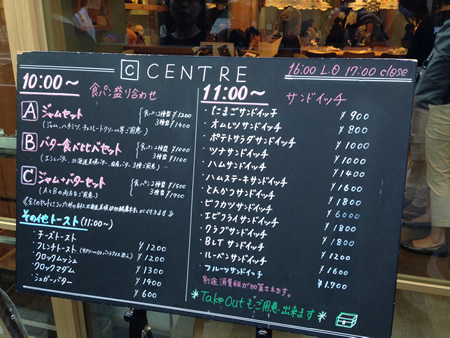 C CENTRE
16:00 L.O 17:00 close
10:00〜
食パン盛り合わせ
A ジャムセット
2種盛 ¥1200
3種盛 ¥1400
(ジャム、ハチミツ、チョコレートクリーム等ご用意)
B バター食べ比べセット
2種盛 ¥1000
3種盛 ¥1200
C ジャム+バターセット
2種盛 ¥1500
3種盛 ¥1700
(A+Bの両方をご用意)
その他トースト (11:00〜)
・チーズトースト ¥1200
・フレンチトースト ¥1200
・クロックムッシュ ¥1300
・クロックマダム ¥1400
・シュガーバター ¥600
11:00〜
サンドイッチ
・たまごサンドイッチ ¥900
・オムレツサンドイッチ ¥800
・ポテトサラダサンドイッチ ¥1000
・ツナサンドイッチ ¥1000
・ハムサンドイッチ ¥1400
・ハムステーキサンドイッチ ¥1600
・とんかつサンドイッチ ¥1800
・ビフカツサンドイッチ ¥6000
・エビフライサンドイッチ ¥1800
・クラブサンドイッチ ¥1800
・BLTサンドイッチ ¥1200
・ルーベンサンドイッチ ¥1600
・フルーツサンドイッチ ¥1,700
別途消費税が加算されます。
★Take Outもご用意出来ます★